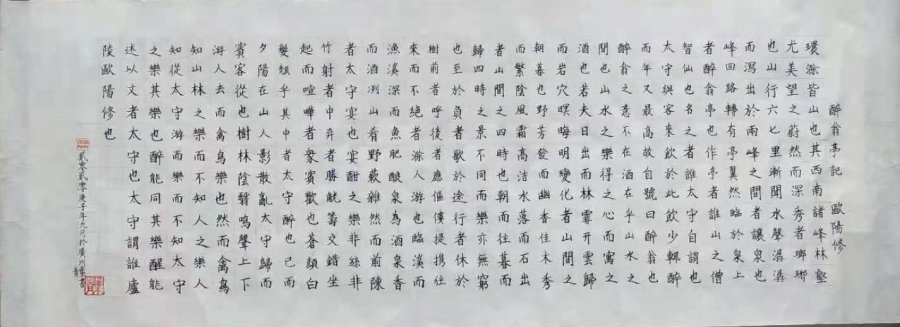 醉翁亭記 歐陽修
環滁皆山也其西南諸峰林壑
尤美望之蔚然而深秀者瑯琊
也山行六七里漸聞水聲潺潺
而瀉出於兩峰之間者讓泉也
峰回路轉有亭翼然臨於泉上
者醉翁亭也作亭者誰山之僧
智仙也名之者誰太守自謂也
太守與客來飲於此飲少輒醉
而年又最高故自號曰醉翁也
醉翁之意不在酒在乎山水之
間也山水之樂得之心而寓之
酒也若夫日出而林霏開雲歸
而岩穴暝晦明變化者山間之
朝暮也野芳發而幽香佳木秀
而繁陰風霜高潔水落而石出
者山間之四時也朝而往暮而
歸四時之景不同而樂亦無窮
也至於負者歌於途行者休於
樹前者呼後者應傴僂提携往
來而不絕者滁人游也臨溪而
漁溪深而魚肥釀泉為酒泉香
而酒洌山肴野蔌雜然而前陳
者太守宴也宴酣之樂非絲非
竹射者中弈者勝觥籌交錯坐
起而喧嘩者衆賓歡也蒼顏白
髮頹乎其中者太守醉也已而
夕陽在山人影散亂太守歸而
賓客從也樹林陰翳鳴聲上下
游人去而禽鳥樂也然而禽鳥
知山林之樂而不知人之樂人
知從太守游而樂而不知太守
之樂其樂也醉能同其樂醒能
述以文者太守也太守謂誰廬
陵歐陽修也
貳零貳零庚子年九月於廣州